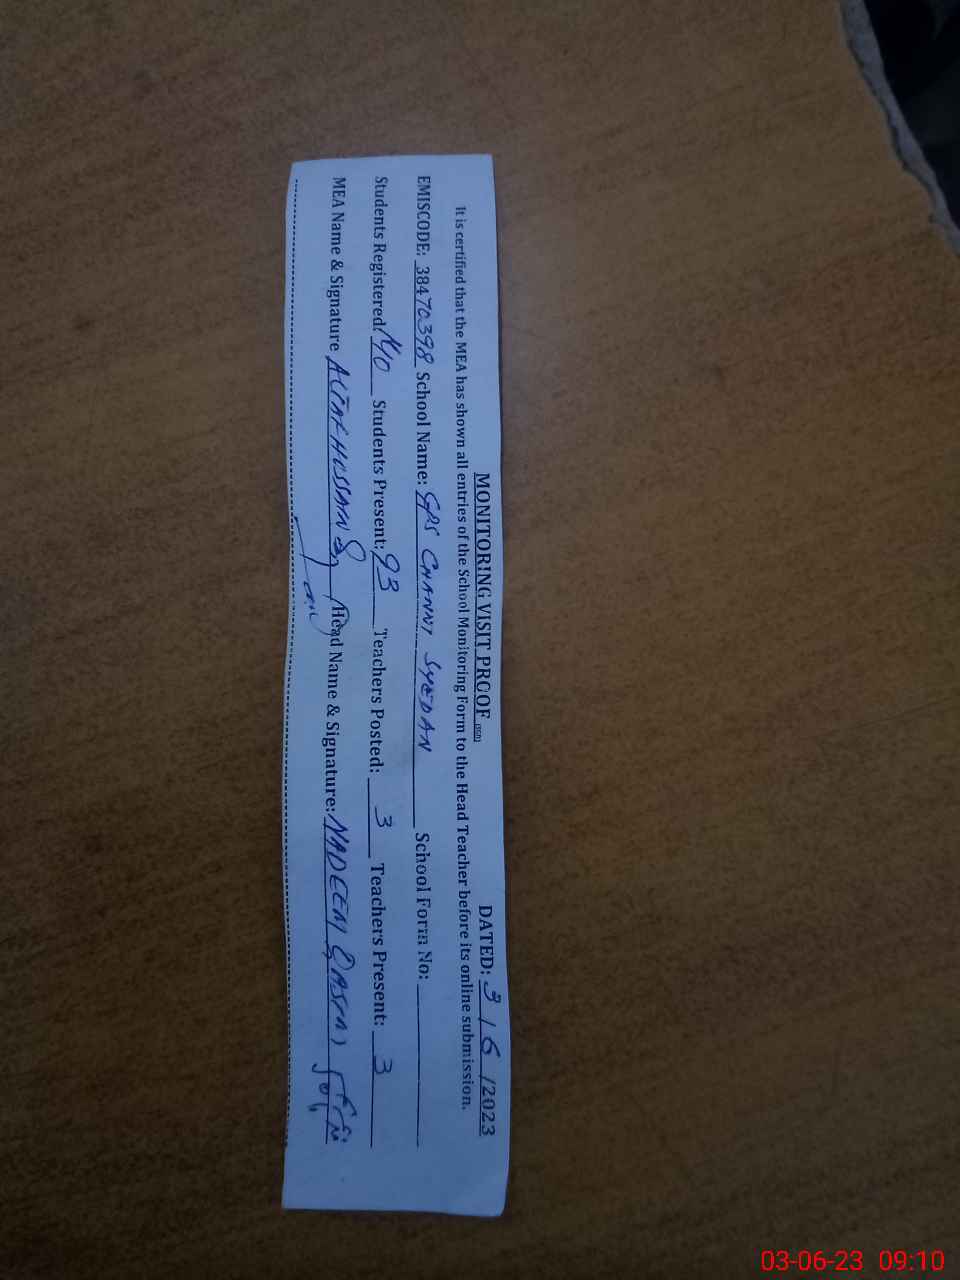 MONITORING VISIT PROOF (SED) DATED: 3/6/2023
It is certified that the MEA has shown all entries of the School Monitoring Form to the Head Teacher before its online submission.
EMISCODE: 38470398 School Name: GPS CHANNI SYEDAN School Form No:
Students Registered: 140 Students Present: 93 Teachers Posted: 3 Teachers Present: 3
MEA Name & Signature ALTAF HUSSAIN Head Name & Signature: NADEEM QASMI
03-06-23 09:10